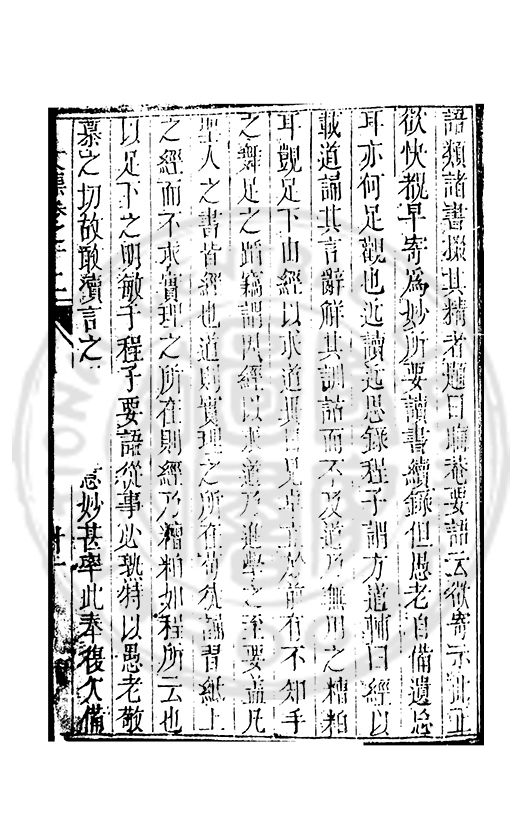 語類諸書掇其精者題曰晦菴要語云欲寄示此正
欲快覩早寄為妙所要讀書續錄但愚老自備遺忘
耳亦何足觀也近讀近思錄程子謂方道輔曰經以
載道誦其言辭解其訓詁而不及道乃無用之糟粕
耳覬足下由經以求道異日見卓立於前有不知手
之舞足之蹈竊謂因經以求道乃進學之至要蓋凡
聖人之書皆經也道則實理之所在苟徒誦習紙上
之經而不求實理之所在則經乃糟粕如程所云也
以足下之明敏于程子要語從事必熟特以愚老敬
慕之切故敢瀆言之 意妙甚率此奉復欠備
文集卷之十二